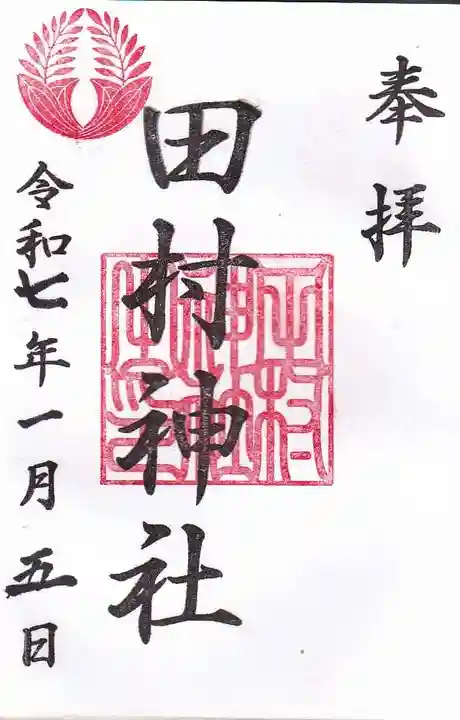 奉拝
田村神社
令和七年一月五日